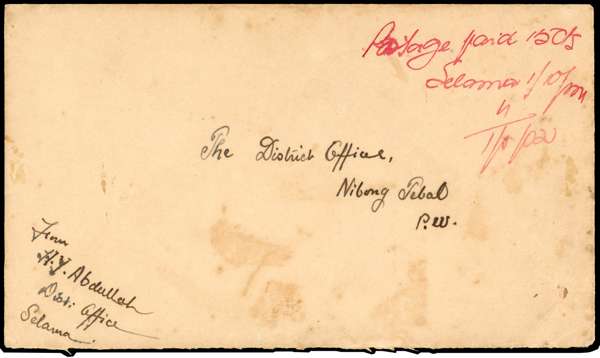 Postage paid 15cts
Selama
The District Office,
Nibong Tebal
P.W.
From
H.Y. Abdullah
Dist: Office
Selama.